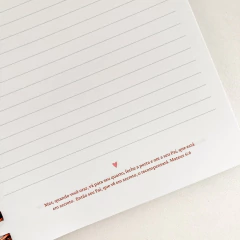 Mas, quando você orar, vá para seu quarto, feche a porta e ore a seu Pai, que está
em secreto. Então seu Pai, que vê em secreto, o recompensará. Mateus 6:6